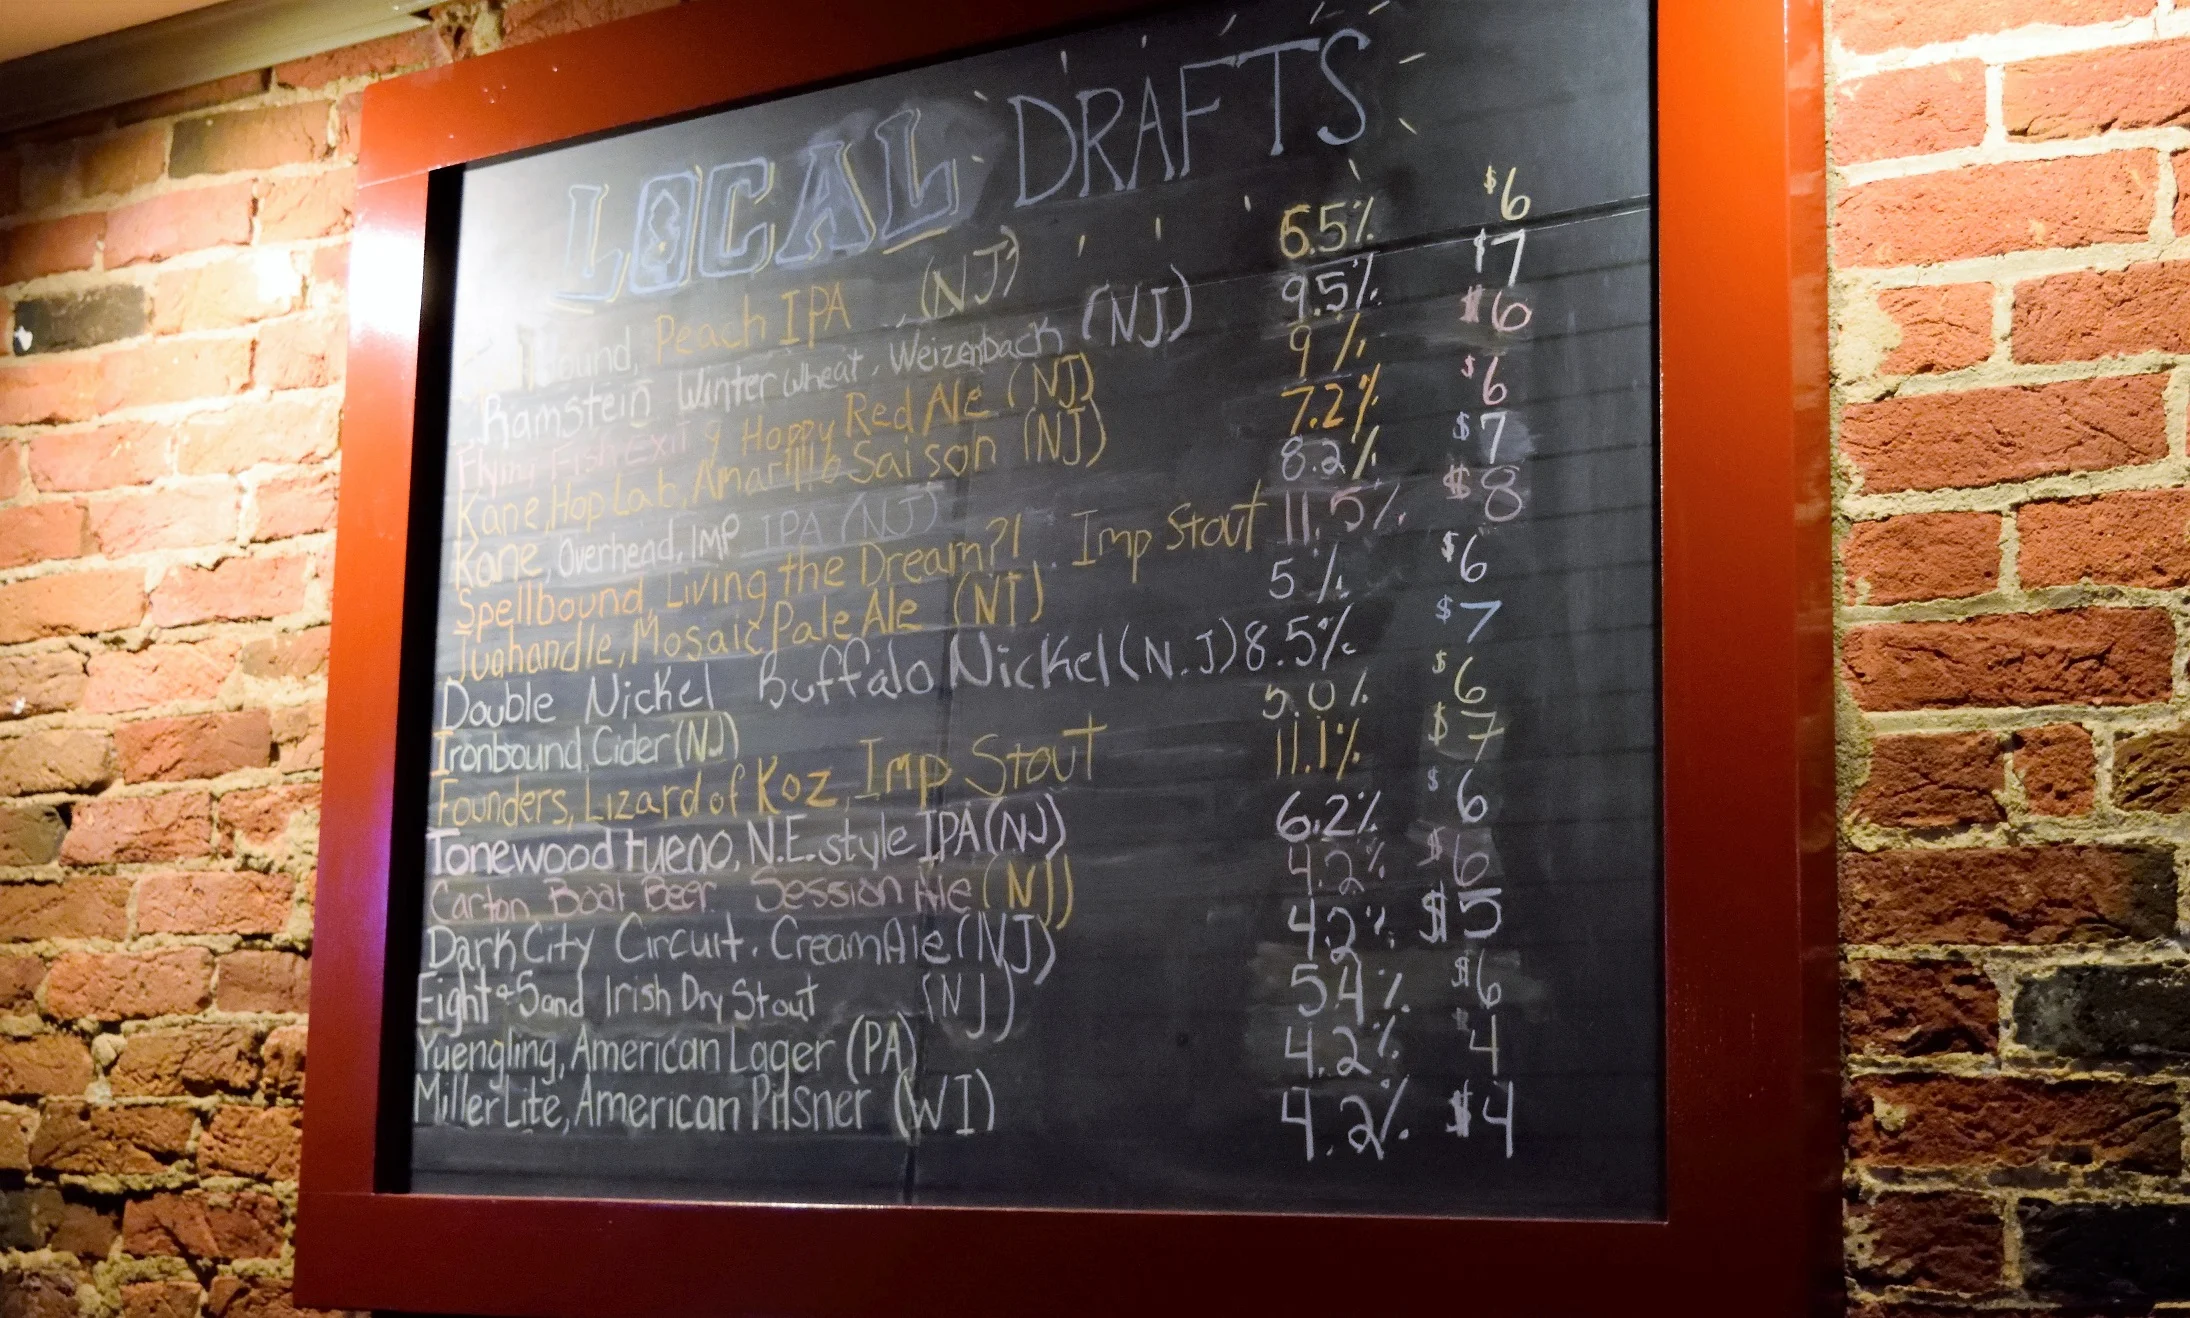 LOCAL DRAFTS
Peach IPA (NJ) 6.5% $6
Ramstein Winter Wheat, Weizenback (NJ) 9.5% $7
Flying Fish Exit 9 Hoppy Red Ale (NJ) 9% $6
Kane, Hop Lab, Amarillo Saison (NJ) 7.2% $6
Kane, Overhead, IMP IPA (NJ) 8.2% $7
Spellbound, Living the Dream?! Imp Stout 11.5% $8
Jughandle, Mosaic Pale Ale (NJ) 5% $6
Double Nickel Buffalo Nickel (N.J) 8.5% $7
Ironbound, Cider (NJ) 5.0% $6
Founders, Lizard of Koz, Imp Stout 11.1% $7
Tonewood Fuego, N.E. style IPA (NJ) 6.2% $6
Carton Boat Beer Session Ale (NJ) 4.2% $6
Dark City Circuit. Cream Ale (NJ) 4.2% $5
Eight & Sand Irish Dry Stout (NJ) 5.4% $6
Yuengling, American Lager (PA) 4.2% $4
Miller Lite, American Pilsner (WI) 4.2% $4